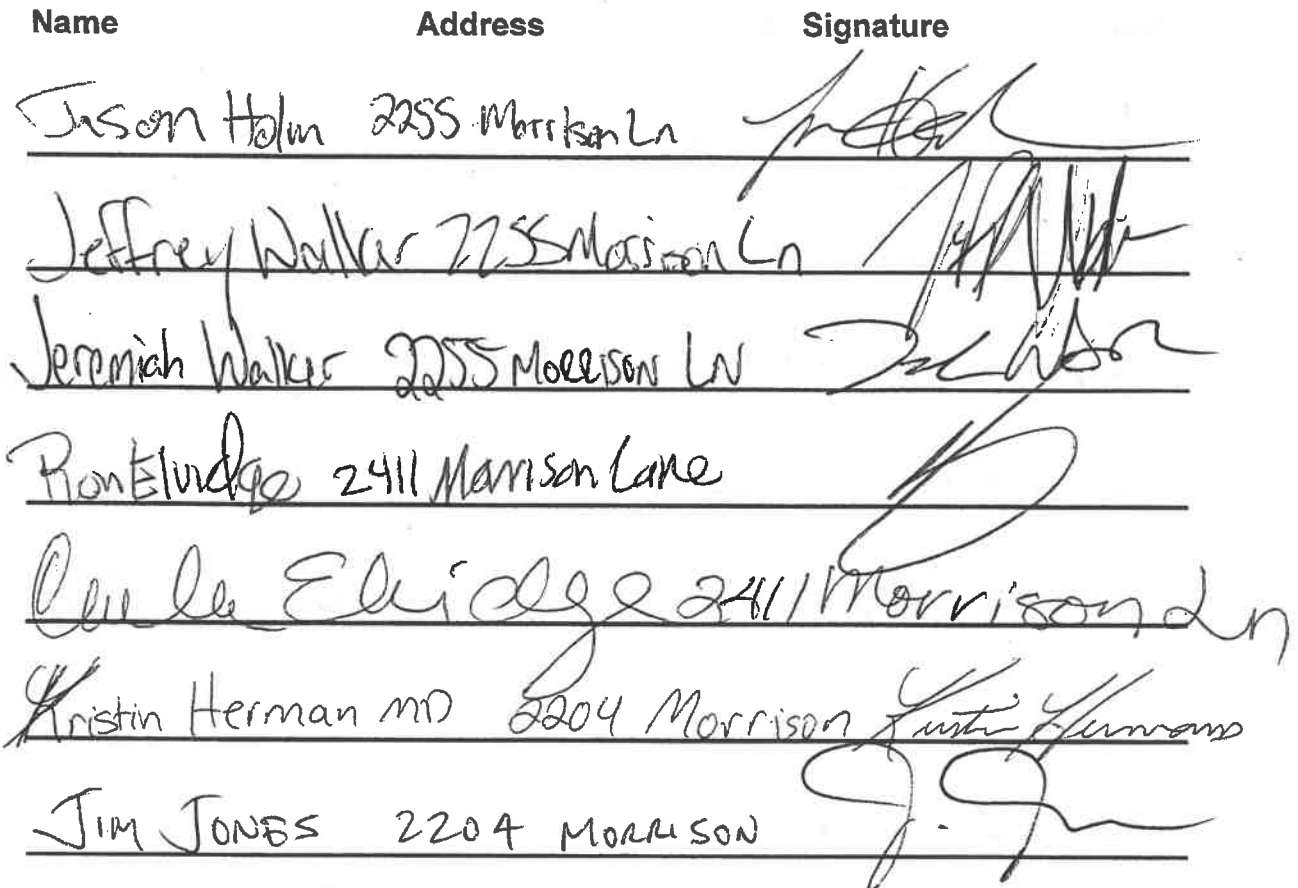 Name Address Signature
Jason Holm 2255 Morrison Ln
Jeffrey Walker 2255 Morrison Ln
Jeremiah Walker 2255 Morrison LN
Ron Elvidge 2411 Morrison Lane
Elvidge 2411 Morrison Ln
Kristin Herman MD 2204 Morrison Kristin Herman MD
JIM JONES 2204 MORRISON J. J